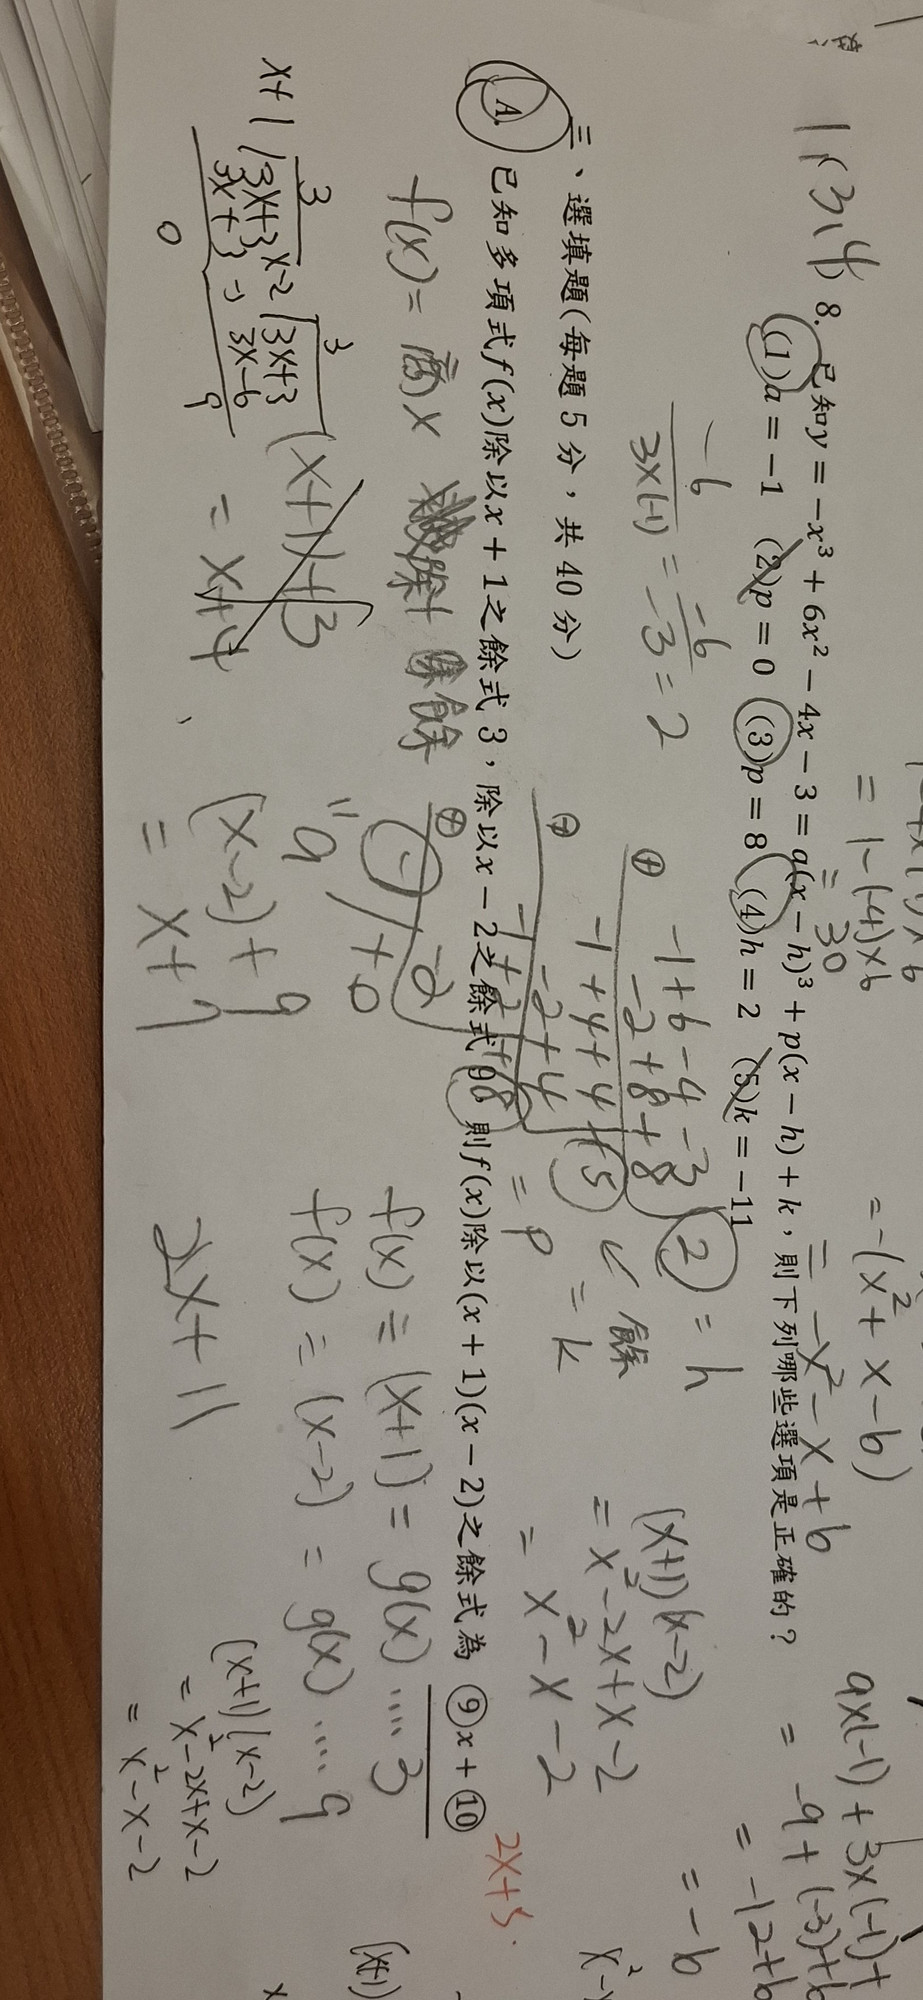 1,3,4
8. 已知y = −x³ + 6x² − 4x − 3 = a(x − h)³ + p(x − h) + k，則下列哪些選項是正確的？
(1)a = −1 (2)p = 0 (3)p = 8 (4)h = 2 (5)k = −11
= 1-(-4)×6
= 30
= -(x² + x - 6)
= -x² - x + 6
9×(-1) + 3×(-1) +
= -9 + (-3) + 6
= -12 + 6
= -6
-6
3×(-1)
= -6
-3
= 2
-1 + 6 - 4 - 3
-2 + 8 + 8
2 = h
-1 + 4 + 4 + 5
餘
= k
-2 + 4
= p
(x+1)(x-2)
= x² - 2x + x - 2
= x² - x - 2
三、選填題(每題 5 分，共 40 分)
A. 已知多項式f(x)除以x + 1之餘式 3，除以x − 2之餘式 9，則f(x)除以(x + 1)(x − 2)之餘式為 ⑨x + ⑩
2x+5.
f(x) = 商×
餘
f(x) = (x+1) = g(x) .... 3
f(x) = (x-2) = g(x) .... 9
x+1
3
3x+3
3x+3
0
x-2
3
3x+3
3x-6
9
(x+1)+3
= x+4
(x-2) + 9
= x + 7
2x + 11
(x+1)(x-2)
= x² - 2x + x - 2
= x² - x - 2
(x+1)